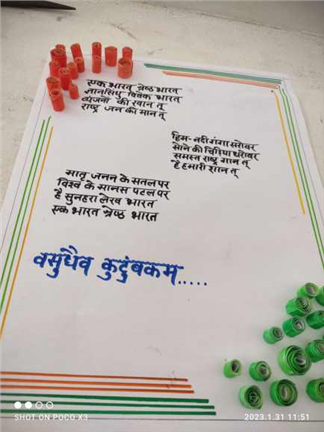 एक भारत श्रेष्ठ भारत
ज्ञानसिंधु विवेक भारत
व्यंजनों की खान तू
राष्ट्र जन की मान तू
हिम-नदी गंगा सरोवर
सोने की चिड़िया धरोहर
समस्त राष्ट्र शान तू
है हमारी शान तू
मातृ जनन के सतल पर
विश्व के मानस पटल पर
है सुनहरा लेख भारत
एक भारत श्रेष्ठ भारत
वसुधैव कुटुंबकम.....
SHOT ON POCO X3
2023.1.31 11:51